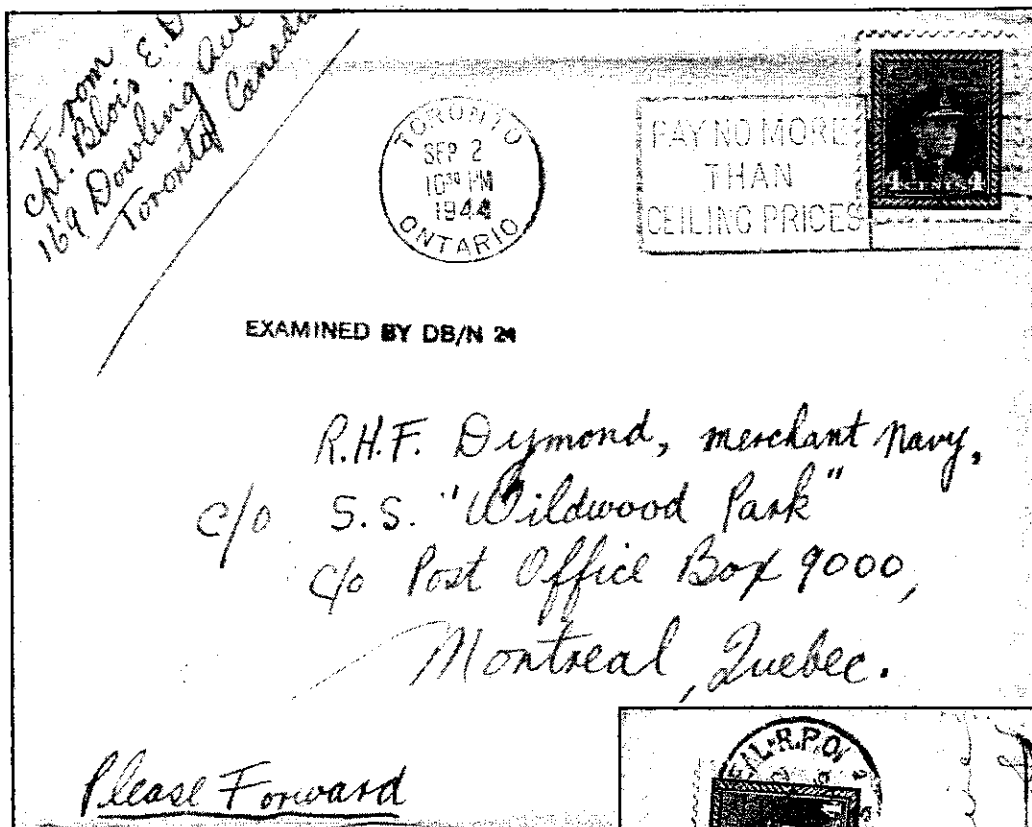 From
Cpl. Blois E. D
169 Dowling Ave
Toronto Canada
TORONTO
SEP 2
10³⁰ PM
1944
ONTARIO
PAY NO MORE
THAN
CEILING PRICES
4 CENTS 4
EXAMINED BY DB/N 24
R.H.F. Dymond, merchant navy,
c/o S.S. "Wildwood Park"
c/o Post Office Box 9000,
Montreal, Quebec.
Please Forward
L.R.P.O.